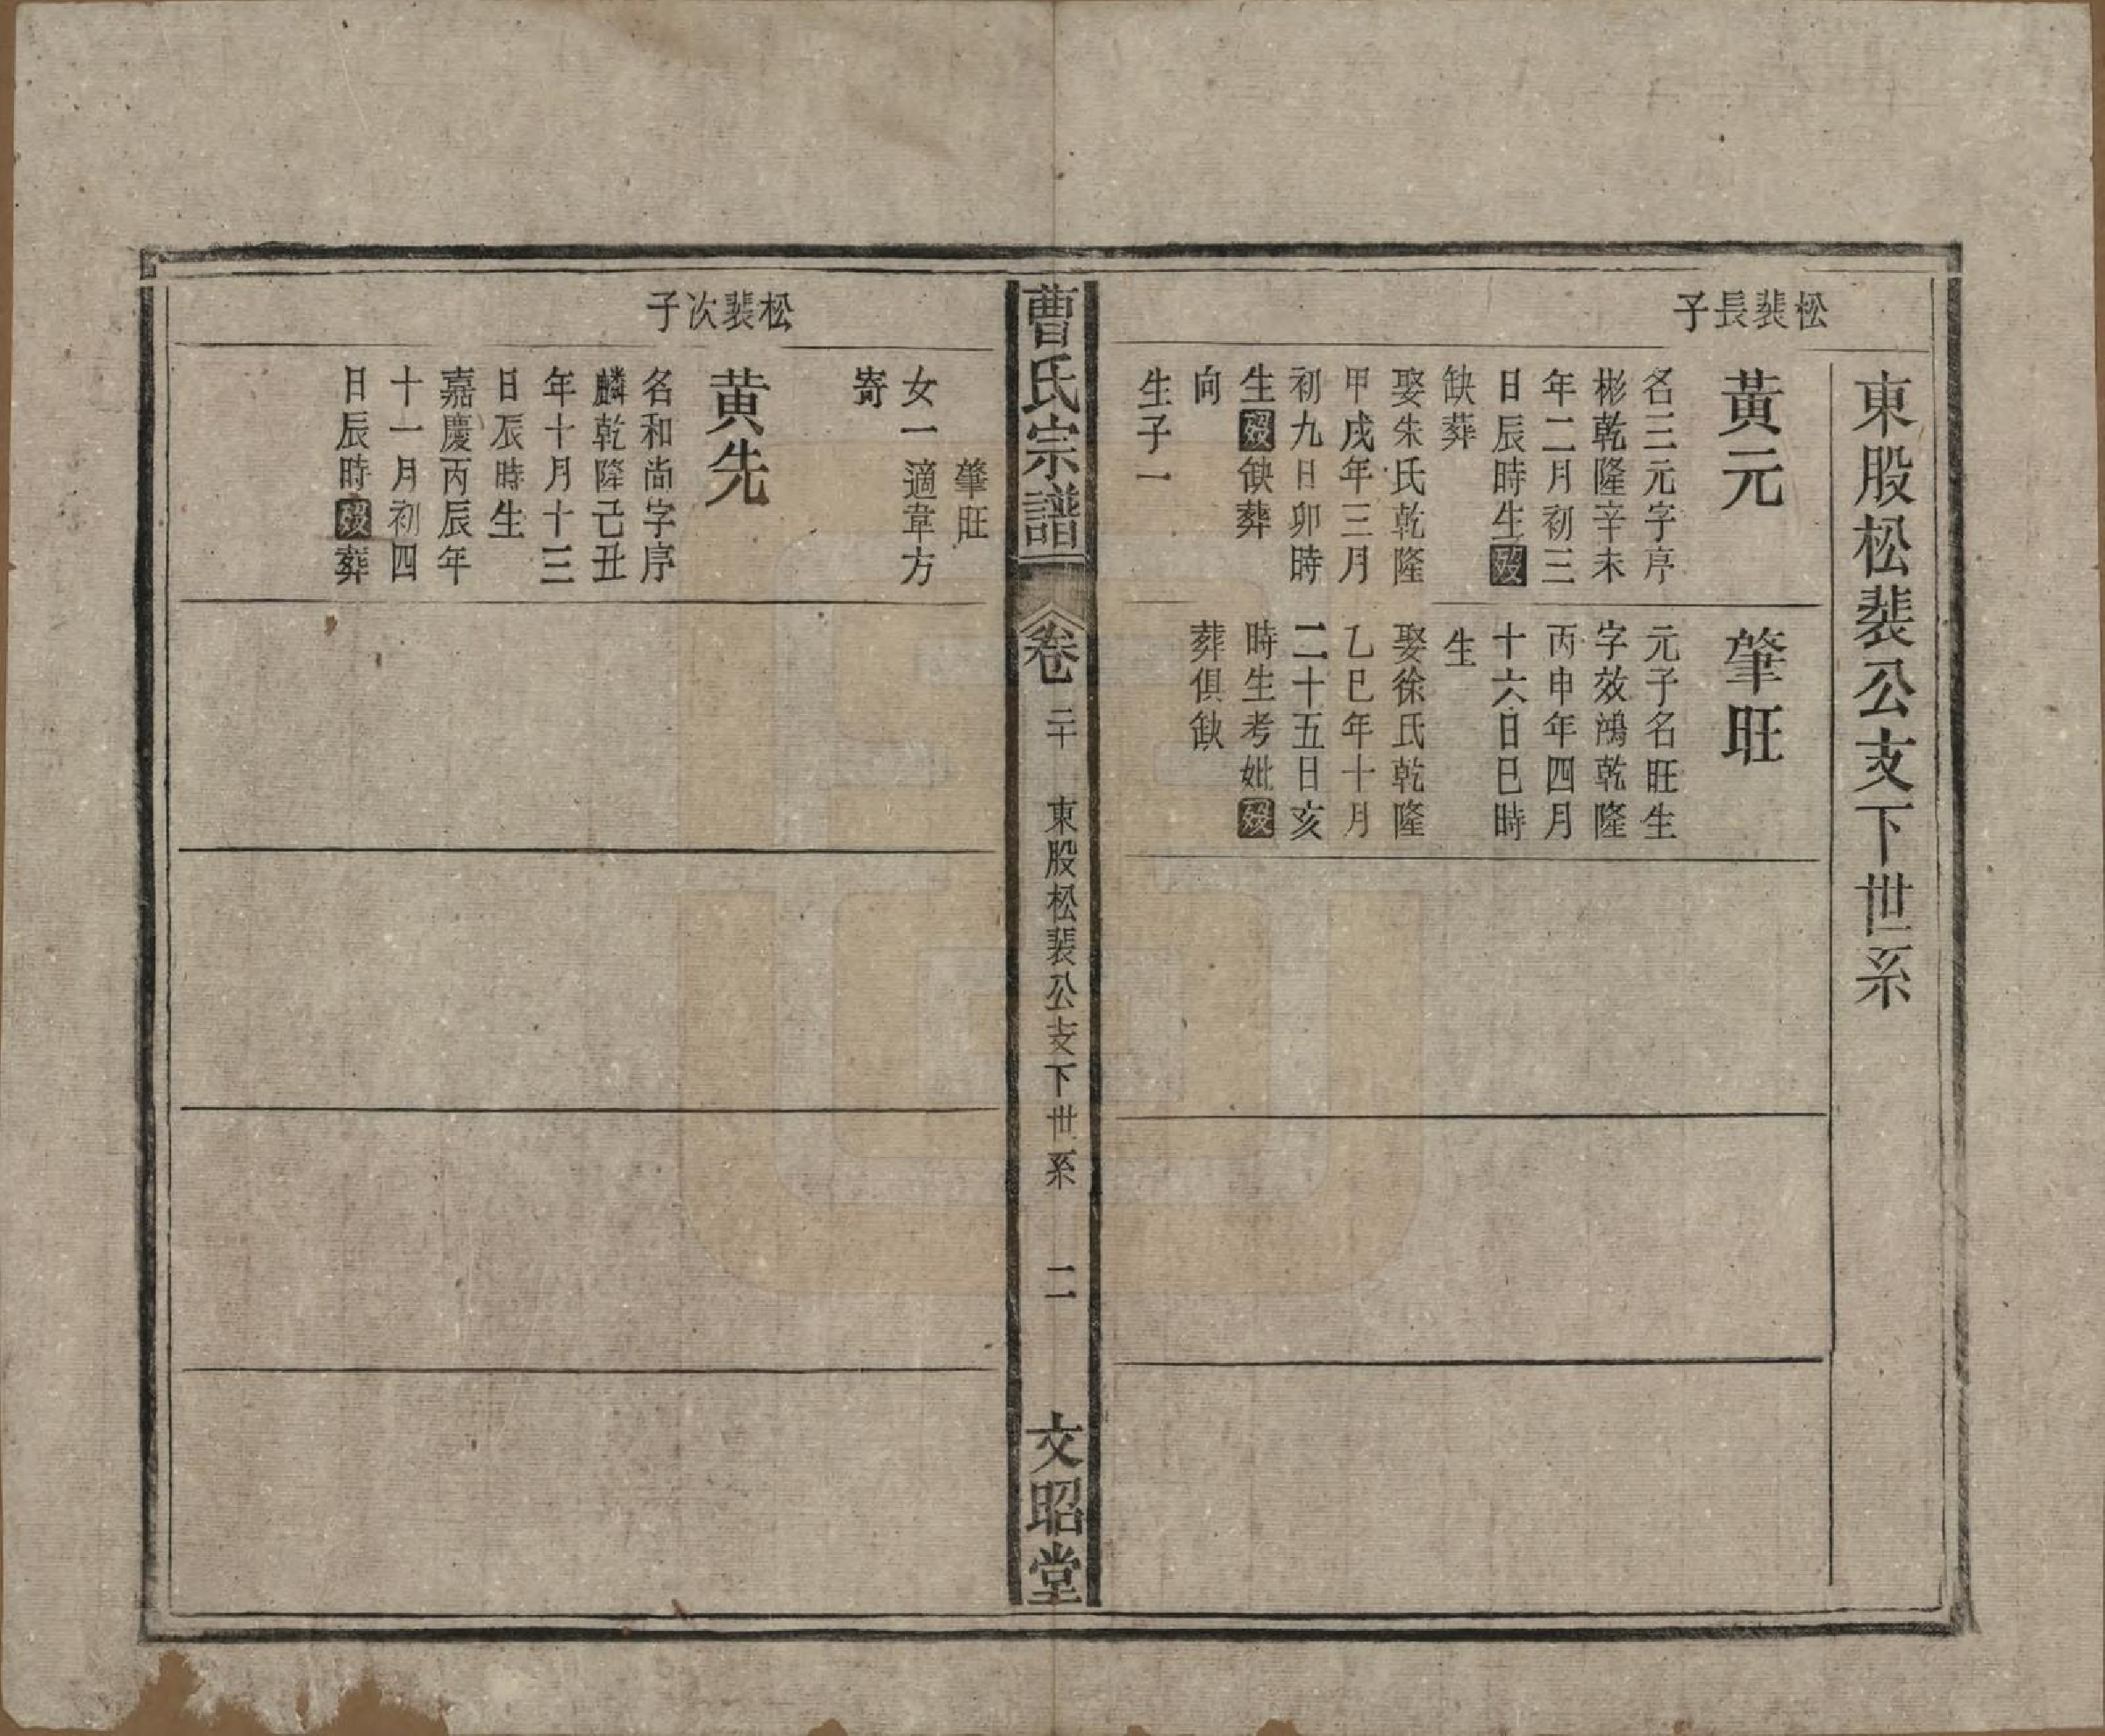 東股松裴公支下世系
松裴長子
黃元
名三元字序
彬乾隆辛未
年二月初三
日辰時生歿
缺葬
娶朱氏乾隆
甲戌年三月
初九日卯時
生歿缺葬
向
生子一
肇旺
元子名旺生
字效鴻乾隆
丙申年四月
十六日巳時
生
娶徐氏乾隆
乙巳年十月
二十五日亥
時生考妣歿
葬俱缺
曹氏宗譜
卷二十
東股松裴公支下世系
二
文昭堂
肇旺
女一適韋方
嵜
松裴次子
黄先
名和尚字序
麟乾隆己丑
年十月十三
日辰時生
嘉慶丙辰年
十一月初四
日辰時歿葬